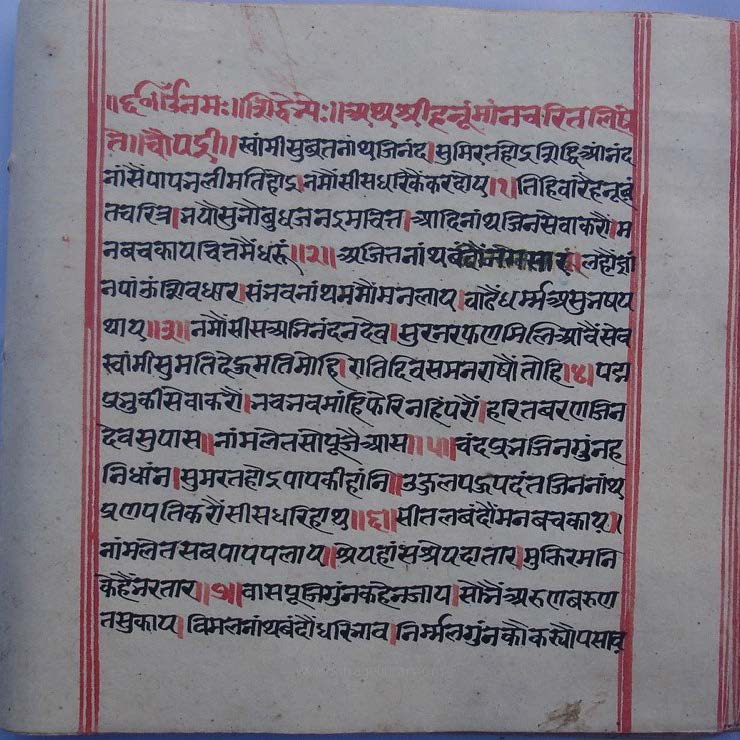 ॥ᳵ॥ॐनमः॥सिद्धेभ्यः॥अथ श्रीहनूंमांनचरित लिंष्य
ते॥चौपई॥स्वांमीसुव्रतनांथजिनंद।सुमिरतहोइसिद्धिआंनंद
नांसैपापनलीमतिहोइ।नमौंसीसधारिकैंकरदोय।१।तिहिवारैहनूवं
तचरित्र।भयौसुनौबुधजनइमचित्त।आदिनाथजिनसेवाकरौं।म
नबचकायचित्तमैंधरूं॥२॥अजितनांथ लहौग्यां
नपांऊंसिवधार।संभवनांथनमौंमनलाय।वाढैधर्म्मअसुनषप
थाय॥३॥नमौंसीसअभिनंदनदेव।सुरनरफणमिलिआवैंसेव
स्वांमीसुमतिदेऊमतिमोहि।रातिदिवसमनराषौंतोहि।४।पद्म
प्रभुकीसेवाकरौं।भवभवमांहिफेरिनहिंपरौं।हरितबरणजिन
देवसुपास॥नांमलेतसोपूजैआस॥५।चंदप्रभजिनगुंनह
निधांन।सुमरतहोइपापकीहांनि॥उज्जलपऊपदंतजिननांथ
प्रणपतिकरौंसीसधरिहाथ॥६॥सीतलबंदौंमनबचकाय।
नांमलेतसबपापपलाय।श्रेयहांसश्रेयदातार।मुक्तिरमनि
केहैंभरतार॥७।वासपूजिगुंनकहेनजाय।सोभैंअरुणबरुण
तसुकाय।विमलनांथबंदौंधरिभाव।निर्म्मलगुंनकौकस्यौपसाव